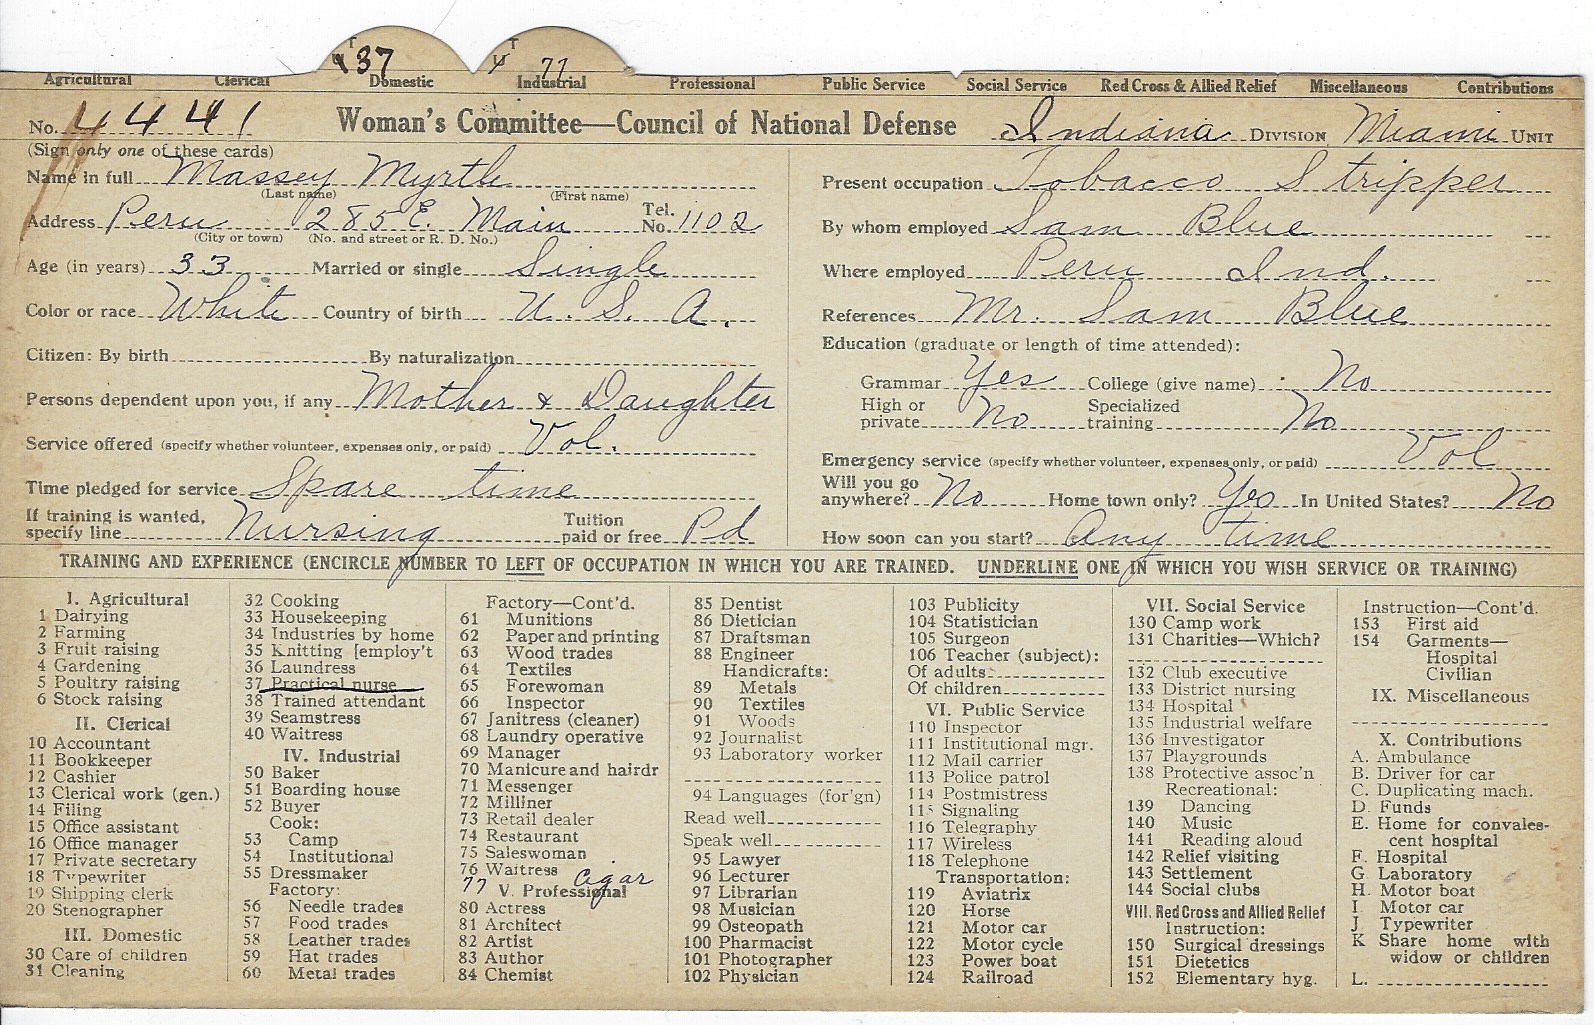 T 37 T U 77
Agricultural Clerical Domestic Industrial Professional Public Service Social Service Red Cross & Allied Relief Miscellaneous Contributions
No. 4441 Woman's Committee—Council of National Defense Indiana DIVISION Miami UNIT
(Sign only one of these cards)
Name in full Massey Myrtle
(Last name) (First name)
Address Peru 285 E. Main Tel. No. 1102
(City or town) (No. and street or R. D. No.)
Age (in years) 33 Married or single Single
Color or race White Country of birth U. S. A.
Citizen: By birth By naturalization
Persons dependent upon you, if any Mother & Daughter
Service offered (specify whether volunteer, expenses only, or paid) Vol.
Time pledged for service Spare time
If training is wanted, specify line Nursing Tuition paid or free Pd
Present occupation Tobacco Stripper
By whom employed Sam Blue
Where employed Peru Ind.
References Mr. Sam Blue
Education (graduate or length of time attended):
Grammar Yes College (give name) No
High or private No Specialized training No
Emergency service (specify whether volunteer, expenses only, or paid) Vol
Will you go anywhere? No Home town only? Yes In United States? No
How soon can you start? Any time
TRAINING AND EXPERIENCE (ENCIRCLE NUMBER TO LEFT OF OCCUPATION IN WHICH YOU ARE TRAINED. UNDERLINE ONE IN WHICH YOU WISH SERVICE OR TRAINING)
I. Agricultural
1 Dairying
2 Farming
3 Fruit raising
4 Gardening
5 Poultry raising
6 Stock raising
II. Clerical
10 Accountant
11 Bookkeeper
12 Cashier
13 Clerical work (gen.)
14 Filing
15 Office assistant
16 Office manager
17 Private secretary
18 Typewriter
19 Shipping clerk
20 Stenographer
III. Domestic
30 Care of children
31 Cleaning
32 Cooking
33 Housekeeping
34 Industries by home
35 Knitting [employ't
36 Laundress
37 Practical nurse
38 Trained attendant
39 Seamstress
40 Waitress
IV. Industrial
50 Baker
51 Boarding house
52 Buyer
Cook:
53 Camp
54 Institutional
55 Dressmaker
Factory:
56 Needle trades
57 Food trades
58 Leather trades
59 Hat trades
60 Metal trades
Factory—Cont'd.
61 Munitions
62 Paper and printing
63 Wood trades
64 Textiles
65 Forewoman
66 Inspector
67 Janitress (cleaner)
68 Laundry operative
69 Manager
70 Manicure and hairdr
71 Messenger
72 Milliner
73 Retail dealer
74 Restaurant
75 Saleswoman
76 Waitress
77 Cigar
V. Professional
80 Actress
81 Architect
82 Artist
83 Author
84 Chemist
85 Dentist
86 Dietician
87 Draftsman
88 Engineer
Handicrafts:
89 Metals
90 Textiles
91 Woods
92 Journalist
93 Laboratory worker
94 Languages (for'gn)
Read well
Speak well
95 Lawyer
96 Lecturer
97 Librarian
98 Musician
99 Osteopath
100 Pharmacist
101 Photographer
102 Physician
103 Publicity
104 Statistician
105 Surgeon
106 Teacher (subject):
Of adults
Of children
VI. Public Service
110 Inspector
111 Institutional mgr.
112 Mail carrier
113 Police patrol
114 Postmistress
115 Signaling
116 Telegraphy
117 Wireless
118 Telephone
Transportation:
119 Aviatrix
120 Horse
121 Motor car
122 Motor cycle
123 Power boat
124 Railroad
VII. Social Service
130 Camp work
131 Charities—Which?
132 Club executive
133 District nursing
134 Hospital
135 Industrial welfare
136 Investigator
137 Playgrounds
138 Protective assoc'n
Recreational:
139 Dancing
140 Music
141 Reading aloud
142 Relief visiting
143 Settlement
144 Social clubs
VIII. Red Cross and Allied Relief
Instruction:
150 Surgical dressings
151 Dietetics
152 Elementary hyg.
Instruction—Cont'd.
153 First aid
154 Garments—
Hospital
Civilian
IX. Miscellaneous
X. Contributions
A. Ambulance
B. Driver for car
C. Duplicating mach.
D. Funds
E. Home for convales-
cent hospital
F. Hospital
G Laboratory
H. Motor boat
I Motor car
J Typewriter
K Share home with
widow or children
L.